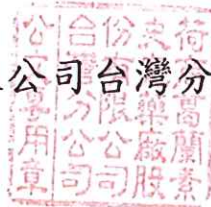 公司台灣分
荷商葛蘭素
史克藥廠股
份有限公司
台灣分公司
公文專用章